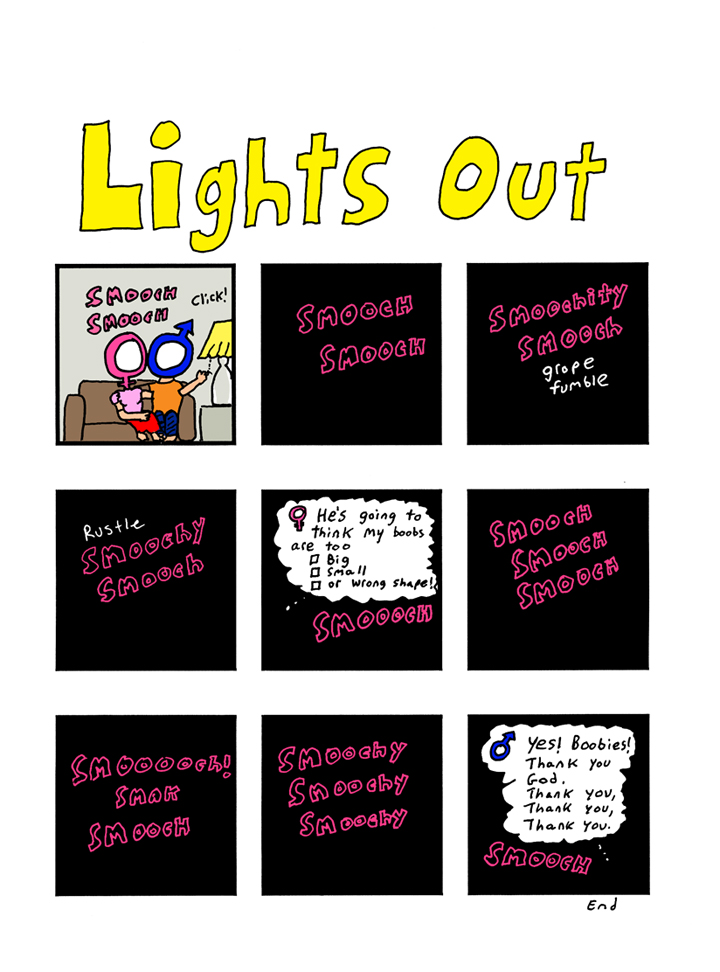 Lights Out
SMOOCH
SMOOCH
Click!
SMOOCH
SMOOCH
Smoochity
SMOOCH
grope
fumble
Rustle
Smoochy
Smooch
He's going to
think my boobs
are too
Big
small
or wrong shape!
SMOOOCH
SMOOCH
SMOOCH
SMOOCH
SMOOOOOch!
SMAK
SMOOCH
SMoochy
SMoochy
SMoochy
Yes! Boobies!
Thank you
God.
Thank you,
Thank you,
Thank you.
SMOOCH
End